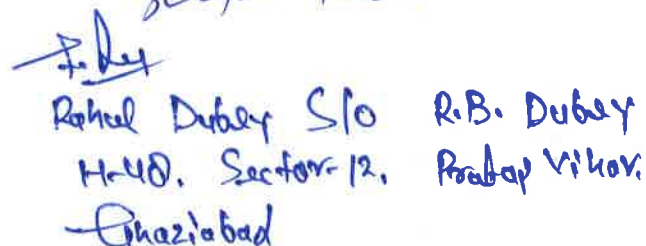 Rahul Dubey S/o R.B. Dubey
H-48. Sector-12, Pratap Vihar.
Ghaziabad